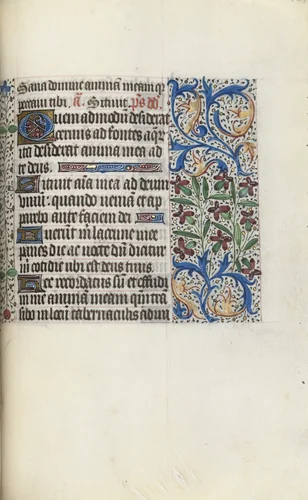 Sana domine animam meam q̄
peccaui tibi. a. Sitiuit. ps dd.
Quemadmodū desiderat
ceruus ad fontes aq̄r̄
ita desiderat anima mea ad
te deus.
Sitiuit aīa mea ad deum
viuū: quando veniam et ap
parebo ante faciem dei
Fuerūt michi lacrime mee
panes die ac nocte dū dicitur
michi cotidie ubi est deus tuus.
Hec recordatus sū et effudi
in me animam meam quoniā
in locū tabernaculi